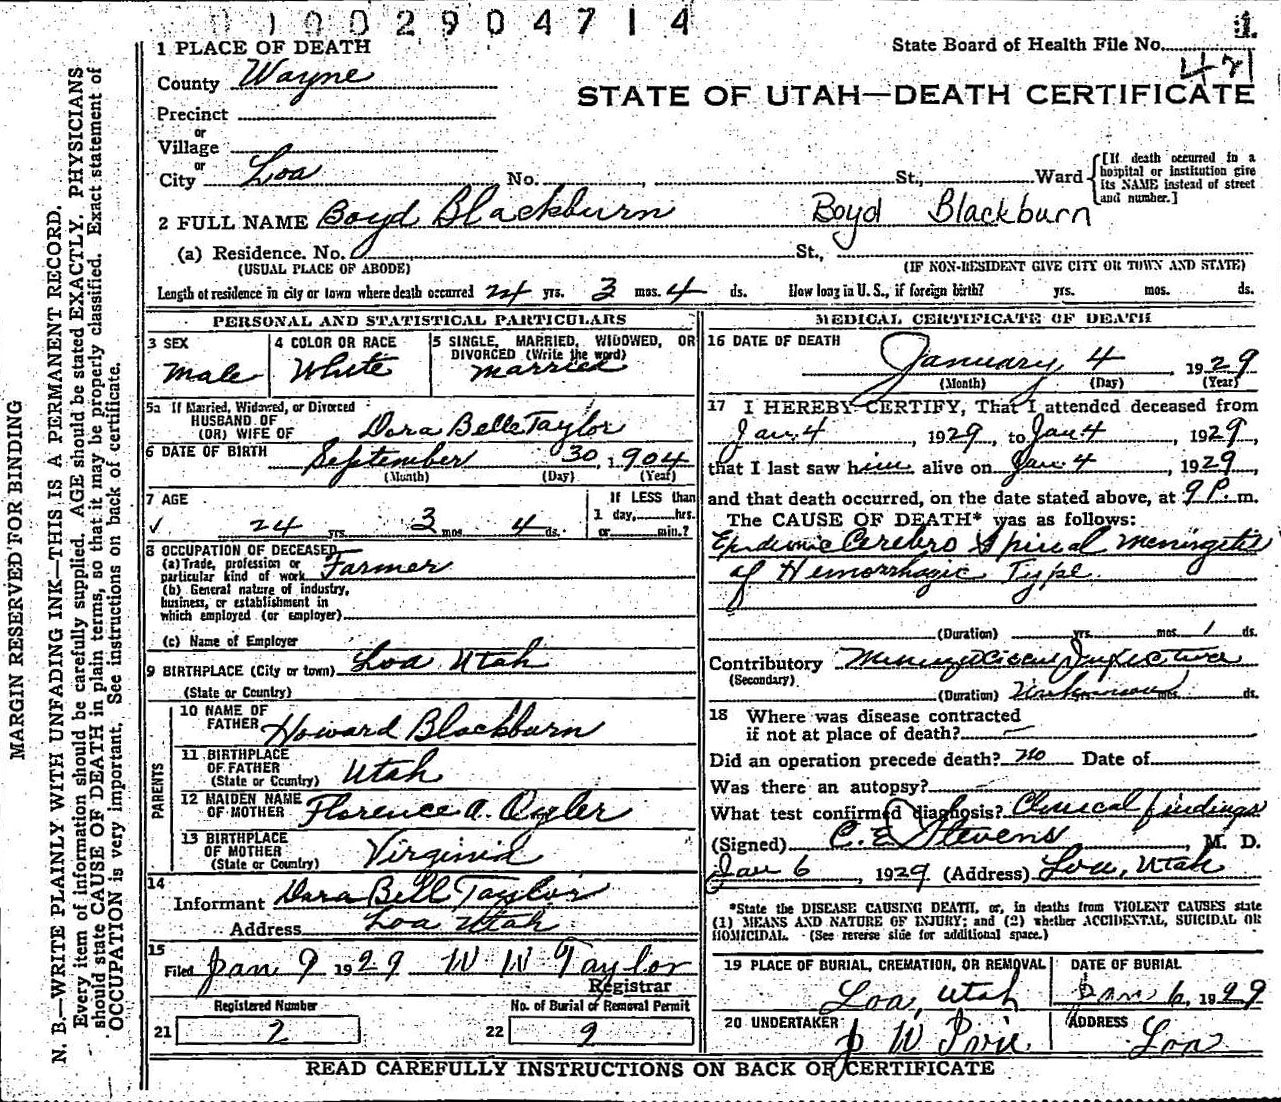 01002904714
1 PLACE OF DEATH
State Board of Health File No. 1
County Wayne
STATE OF UTAH—DEATH CERTIFICATE
Precinct
or
Village
or
City Loa No. , St., Ward
[If death occurred in a hospital or institution give its NAME instead of street and number.]
2 FULL NAME Boyd Blackburn Boyd Blackburn
(a) Residence. No. St.,
(USUAL PLACE OF ABODE) (IF NON-RESIDENT GIVE CITY OR TOWN AND STATE)
Length of residence in city or town where death occurred 24 yrs. 3 mos. 4 ds. How long in U.S., if foreign birth? yrs. mos. ds.
PERSONAL AND STATISTICAL PARTICULARS
3 SEX 4 COLOR OR RACE 5 SINGLE, MARRIED, WIDOWED, OR
DIVORCED (Write the word)
Male White Married
5a If Married, Widowed, or Divorced
HUSBAND OF
(OR) WIFE OF Dora Belle Taylor
6 DATE OF BIRTH September 30, 1904
(Month) (Day) (Year)
7 AGE If LESS than
1 day, hrs.
24 yrs. 3 mos. 4 ds. or min.?
8 OCCUPATION OF DECEASED
(a) Trade, profession or
particular kind of work Farmer
(b) General nature of industry,
business, or establishment in
which employed (or employer)
(c) Name of Employer
9 BIRTHPLACE (City or town) Loa Utah
(State or Country)
PARENTS
10 NAME OF
FATHER Howard Blackburn
11 BIRTHPLACE
OF FATHER
(State or Country) Utah
12 MAIDEN NAME
OF MOTHER Florence A.
13 BIRTHPLACE
OF MOTHER
(State or Country) Virginia
14
Informant Dora Bell Taylor
Address Loa Utah
15
Filed Jan 9 1929 W W Taylor
Registrar
Registered Number No. of Burial or Removal Permit
21 2 22 9
MEDICAL CERTIFICATE OF DEATH
16 DATE OF DEATH January 4, 1929
(Month) (Day) (Year)
17 I HEREBY CERTIFY, That I attended deceased from
Jan. 4, 1929, to Jan 4, 1929
that I last saw him alive on Jan. 4, 1929,
and that death occurred, on the date stated above, at 9 P. m.
The CAUSE OF DEATH* was as follows:
Epidemic Cerebro Spinal Meningitis
of Hemorrhagic Type
(Duration) yrs. mos. 1 ds.
Contributory
(Secondary)
(Duration) Unknown mos. ds.
18 Where was disease contracted
if not at place of death? —
Did an operation precede death? no Date of
Was there an autopsy?
What test confirmed diagnosis? Clinical findings
(Signed) C. E. Stevens, M. D.
Jan 6, 1929 (Address) Loa, Utah
*State the DISEASE CAUSING DEATH, or, in deaths from VIOLENT CAUSES state
(1) MEANS AND NATURE OF INJURY; and (2) whether ACCIDENTAL, SUICIDAL OR
HOMICIDAL. (See reverse side for additional space.)
19 PLACE OF BURIAL, CREMATION, OR REMOVAL DATE OF BURIAL
Loa, Utah Jan 6, 1929
20 UNDERTAKER ADDRESS
W Loa
READ CAREFULLY INSTRUCTIONS ON BACK OF CERTIFICATE
MARGIN RESERVED FOR BINDING
N. B.—WRITE PLAINLY WITH UNFADING INK—THIS IS A PERMANENT RECORD.
Every item of information should be carefully supplied. AGE should be stated EXACTLY. PHYSICIANS
should state CAUSE OF DEATH in plain terms, so that it may be properly classified. Exact statement of
OCCUPATION is very important. See instructions on back of certificate.